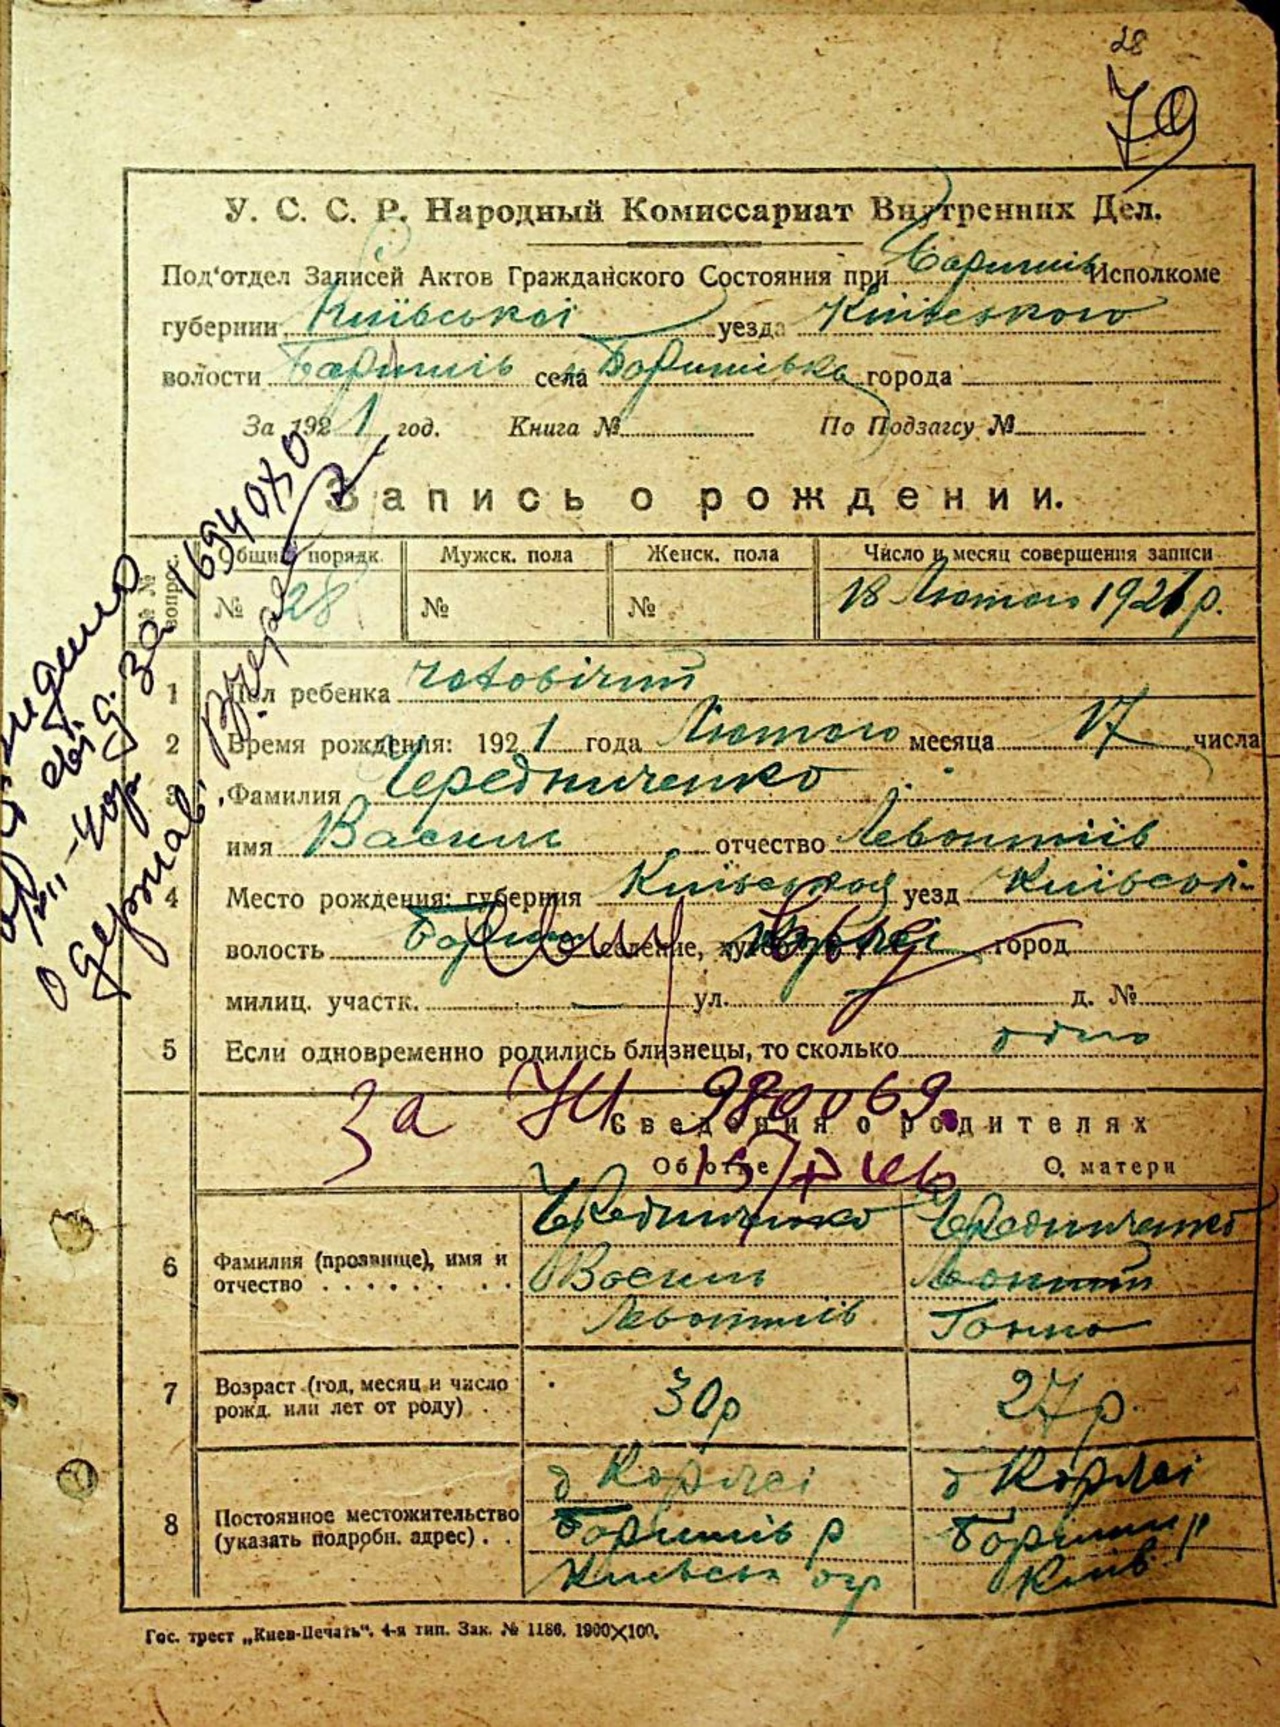 28
79
У. С. С. Р. Народный Комиссариат Внутренних Дел.
Под'отдел Записей Актов Гражданского Состояния при Баришів. Исполкоме
губернии Київської уезда Київського
волости Баришів села Баришівка города
За 1921 год. Книга № По Подзагсу №
Запись о рождении.
№ № вопрос. Общий порядк. Мужск. пола Женск. пола Число и месяц совершения записи
№ 28 № № 18 Лютого 1921 р.
1 Пол ребенка чоловічий
2 Время рождения: 1921 года Лютого месяца 17 числа
3 Фамилия Чередниченко
имя Василь отчество Левонтіїв
4 Место рождения: губерния Київська уезд Київськ
волость Бориш селение, город
милиц. участк. ул. д. №
5 Если одновременно родились близнецы, то сколько одно
за 980069
Сведения о родителях
Об отце О матери
6 Фамилия (прозвище), имя и отчество
Чередниченко Чередниченко
Василь
Левонтіїв Ганна
7 Возраст (год, месяц и число рожд. или лет от роду)
30 р 27 р.
8 Постоянное местожительство (указать подробн. адрес)
Баришів р
Київськ окр Київ
за 1694070
о державі
Гос. трест „Киев-Печать“. 4-я тип. Зак. № 1186. 1900×100.